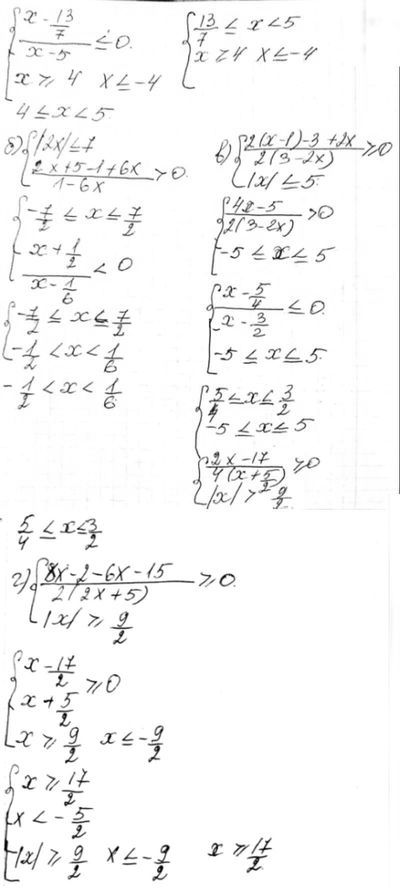 { (x - 13/7)/(x - 5) ≤ 0.
x ⩾ 4  x ≤ -4
4 ≤ x < 5
{ 13/7 ≤ x < 5
x ⩾ 4  x ≤ -4
б) { |2x| ≤ 7
(2x+5-1+6x)/(1-6x) > 0.
{ -7/2 ≤ x ≤ 7/2
(x + 1/2)/(x - 1/6) < 0
{ -7/2 ≤ x ≤ 7/2
-1/2 < x < 1/6
-1/2 < x < 1/6
в) { (2(x-1)-3+2x)/(2(3-2x)) ⩾ 0
|x| ≤ 5.
{ (4x-5)/(2(3-2x)) > 0
-5 ≤ x ≤ 5
{ (x - 5/4)/(x - 3/2) ≤ 0.
-5 ≤ x ≤ 5.
{ 5/4 ≤ x ≤ 3/2
-5 ≤ x ≤ 5
{ (2x-17)/(4(x+5/2)) ⩾ 0
|x| > 9/2
5/4 ≤ x ≤ 3/2
г) { (8x-2-6x-15)/(2(2x+5)) ⩾ 0.
|x| ⩾ 9/2
{ (x - 17/2)/(x + 5/2) ⩾ 0
x ⩾ 9/2  x ≤ -9/2
{ x ⩾ 17/2
x < -5/2
|x| ⩾ 9/2  x ≤ -9/2  x ⩾ 17/2